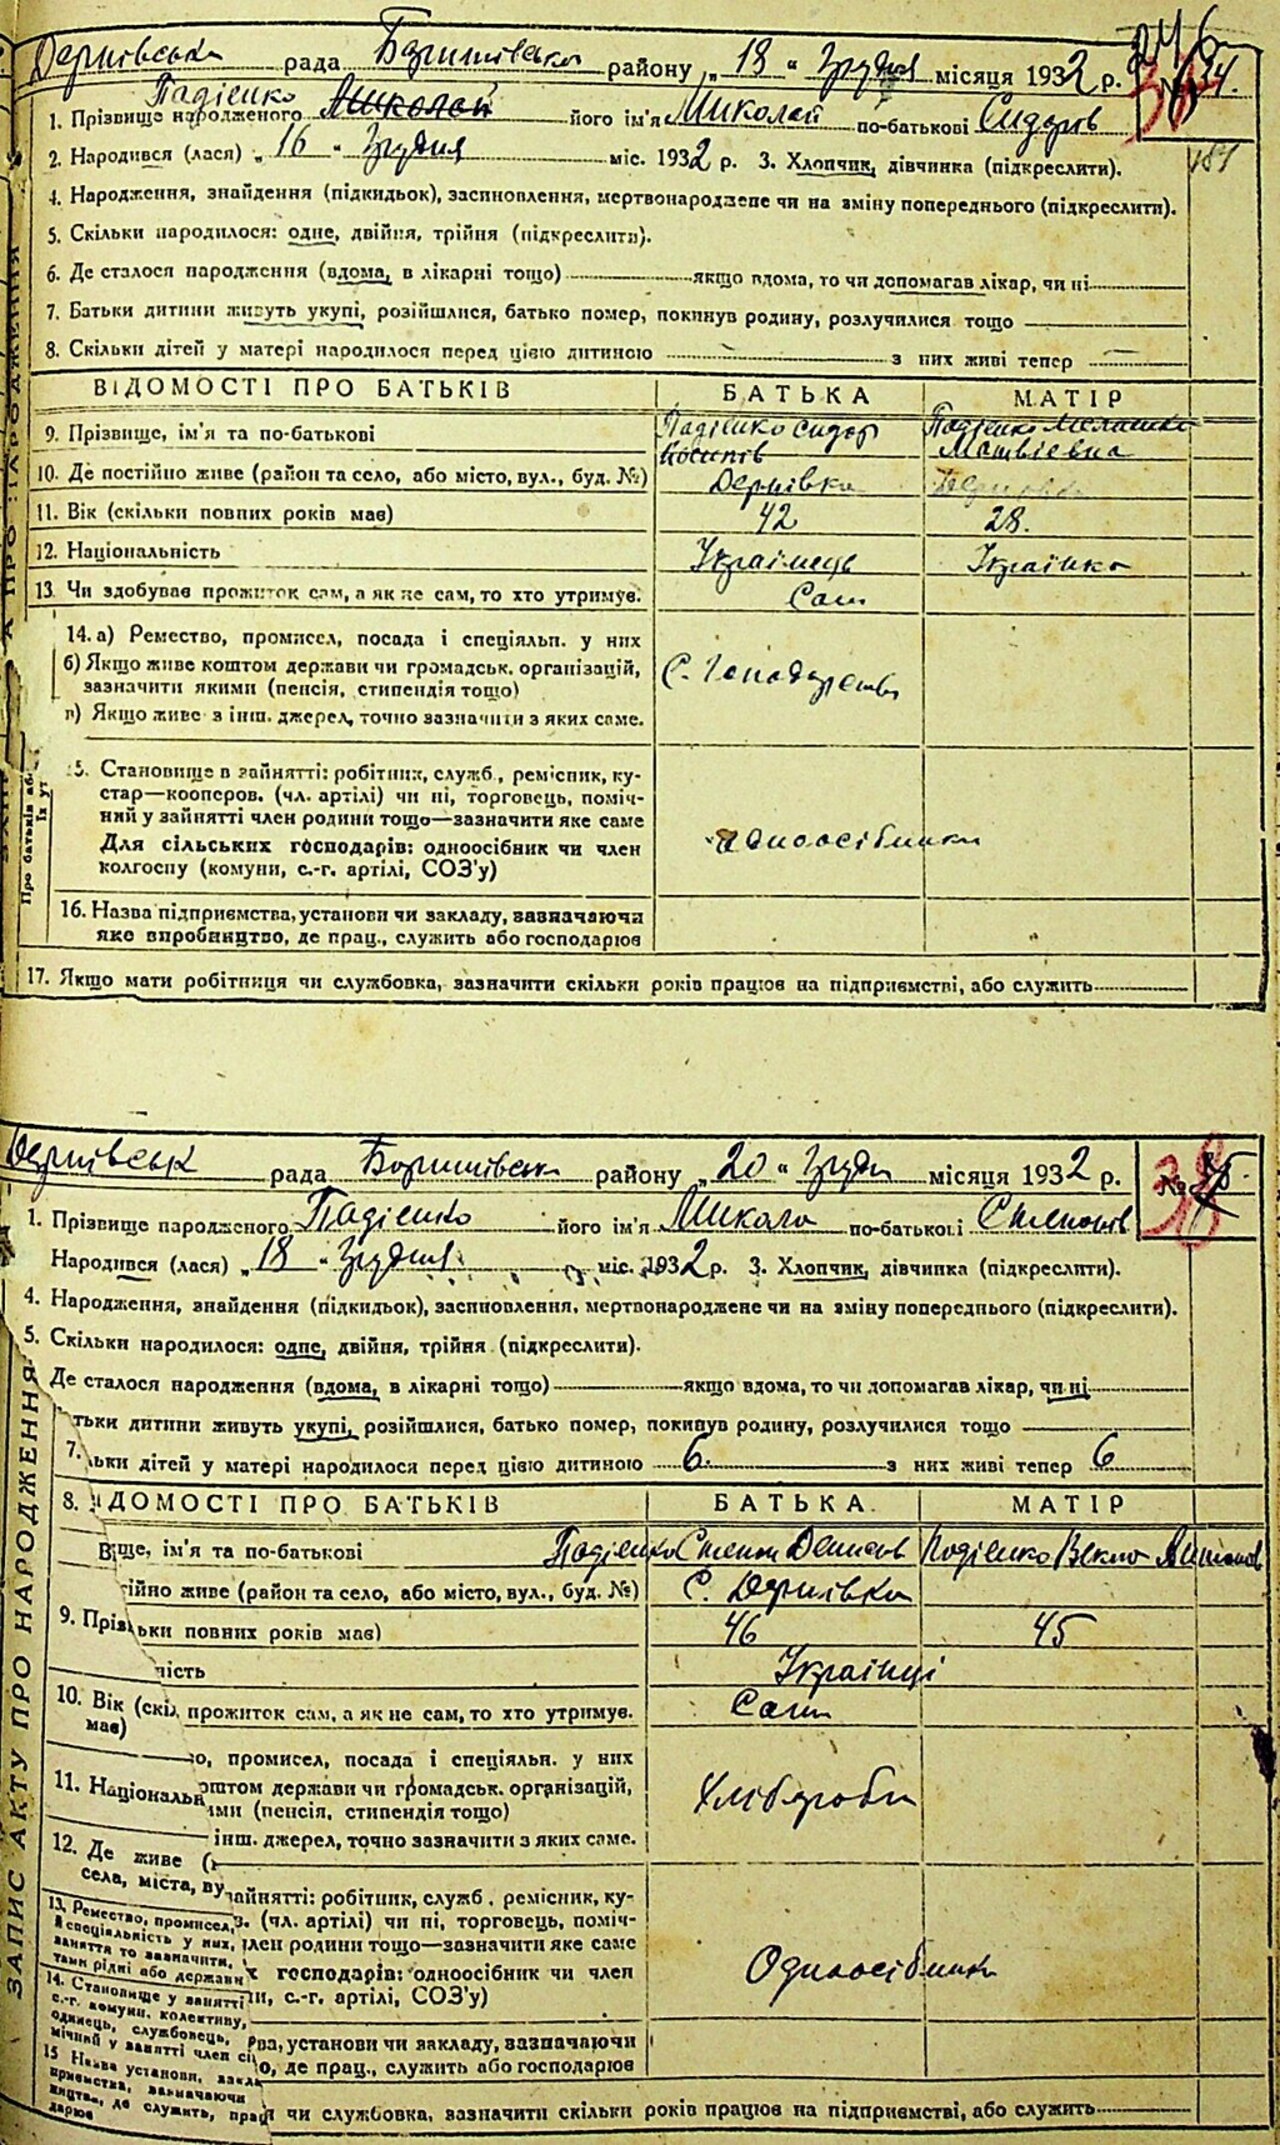 Дернівська рада Баришівська району „ 18 “ Грудня місяця 1932 р. № 34.
Падіенко
1. Прізвище народженого Миколай його ім'я Миколай по-батькові Сидорів
2. Народився (лася) „ 16 “ Грудня міс. 1932 р. 3. Хлопчик, дівчинка (підкреслити). 187
4. Народження, знайдення (підкидьок), засиновлення, мертвонароджене чи на зміну попереднього (підкреслити).
5. Скільки народилося: одне, двійня, трійня (підкреслити).
6. Де сталося народження (вдома, в лікарні тощо) якщо вдома, то чи допомагав лікар, чи ні
7. Батьки дитини живуть укупі, розійшлися, батько помер, покинув родину, розлучилися тощо
8. Скільки дітей у матері народилося перед цією дитиною — з них живі тепер —
ВІДОМОСТІ ПРО БАТЬКІВ БАТЬКА МАТІР
9. Прізвище, ім'я та по-батькові Падіенко Сидор Йосипів Падіенко Мелашка Матвіевна
10. Де постійно живе (район та село, або місто, вул., буд. №) Дернівка Дернівка
11. Вік (скільки повних років має) 42 28.
12. Національність Українець Українка
13. Чи здобуває прожиток сам, а як не сам, то хто утримує. Сам
14. а) Ремество, промисел, посада і спеціяльн. у них
б) Якщо живе коштом держави чи громадськ. організацій, С. Господарство
зазначити якими (пенсія, стипендія тощо)
в) Якщо живе з інш. джерел, точно зазначити з яких саме.
5. Становище в зайнятті: робітник, служб., ремісник, ку-
стар—кооперов. (чл. артілі) чи ні, торговець, поміч-
ний у зайнятті член родини тощо—зазначити яке саме
Для сільських господарів: одноосібник чи член одноосібники
колгоспу (комуни, с.-г. артілі, СОЗ'у)
16. Назва підприємства, установи чи закладу, зазначаючи
яке виробництво, де прац., служить або господарює
17. Якщо мати робітниця чи службовка, зазначити скільки років працює на підприємстві, або служить
Про батьків аб
Їх ут
Дернівськ рада Баришівськ району „ 20 “ Грудн місяця 1932 р. №
1. Прізвище народженого Падіенко його ім'я Микола по-батькові Степанів
Народився (лася) „ 18 “ Грудня міс. 1932 р. 3. Хлопчик, дівчинка (підкреслити).
4. Народження, знайдення (підкидьок), засиновлення, мертвонароджене чи на зміну попереднього (підкреслити).
5. Скільки народилося: одне, двійня, трійня (підкреслити).
Де сталося народження (вдома, в лікарні тощо) якщо вдома, то чи допомагав лікар, чи ні
тьки дитини живуть укупі, розійшлися, батько помер, покинув родину, розлучилися тощо
7. льки дітей у матері народилося перед цією дитиною 6. з них живі тепер 6
8. ІДОМОСТІ ПРО БАТЬКІВ БАТЬКА МАТІР
вще, ім'я та по-батькові Падіенко Степан Денисов Подіенко Векла Антонов
тійно живе (район та село, або місто, вул., буд. №) С. Дернівка
9. Прізв ьки повних років має) 46 45
ність Українці
10. Вік (скіл прожиток сам, а як не сам, то хто утримує. Сам
має)
о, промисел, посада і спеціяльн. у них
11. Національн оштом держави чи громадськ. організацій, Хлібороби
ими (пенсія, стипендія тощо)
інш. джерел, точно зазначити з яких саме.
12. Де живе (
села, міста, ву зайнятті: робітник, служб., ремісник, ку-
13. Ремество, промисел, в. (чл. артілі) чи ні, торговець, поміч-
й спеціяльність у них, член родини тощо—зазначити яке саме
заняття то зазначити,
тами рідні або держави х господарів: одноосібник чи член Одноосібники
14. Становище у занятті ни, с.-г. артілі, СОЗ'у)
с.-г. комуни, колективу,
одинець, службовець, ва, установи чи закладу, зазначаючи
мічний у занятті член сі о, де прац., служить або господарює
15 Назва установи, закла
приємства, зазначаючи
ництва, де служить, прац я чи службовка, зазначити скільки років працює на підприємстві, або служить
дарює
ЗАПИС АКТУ ПРО НАРОДЖЕННЯ